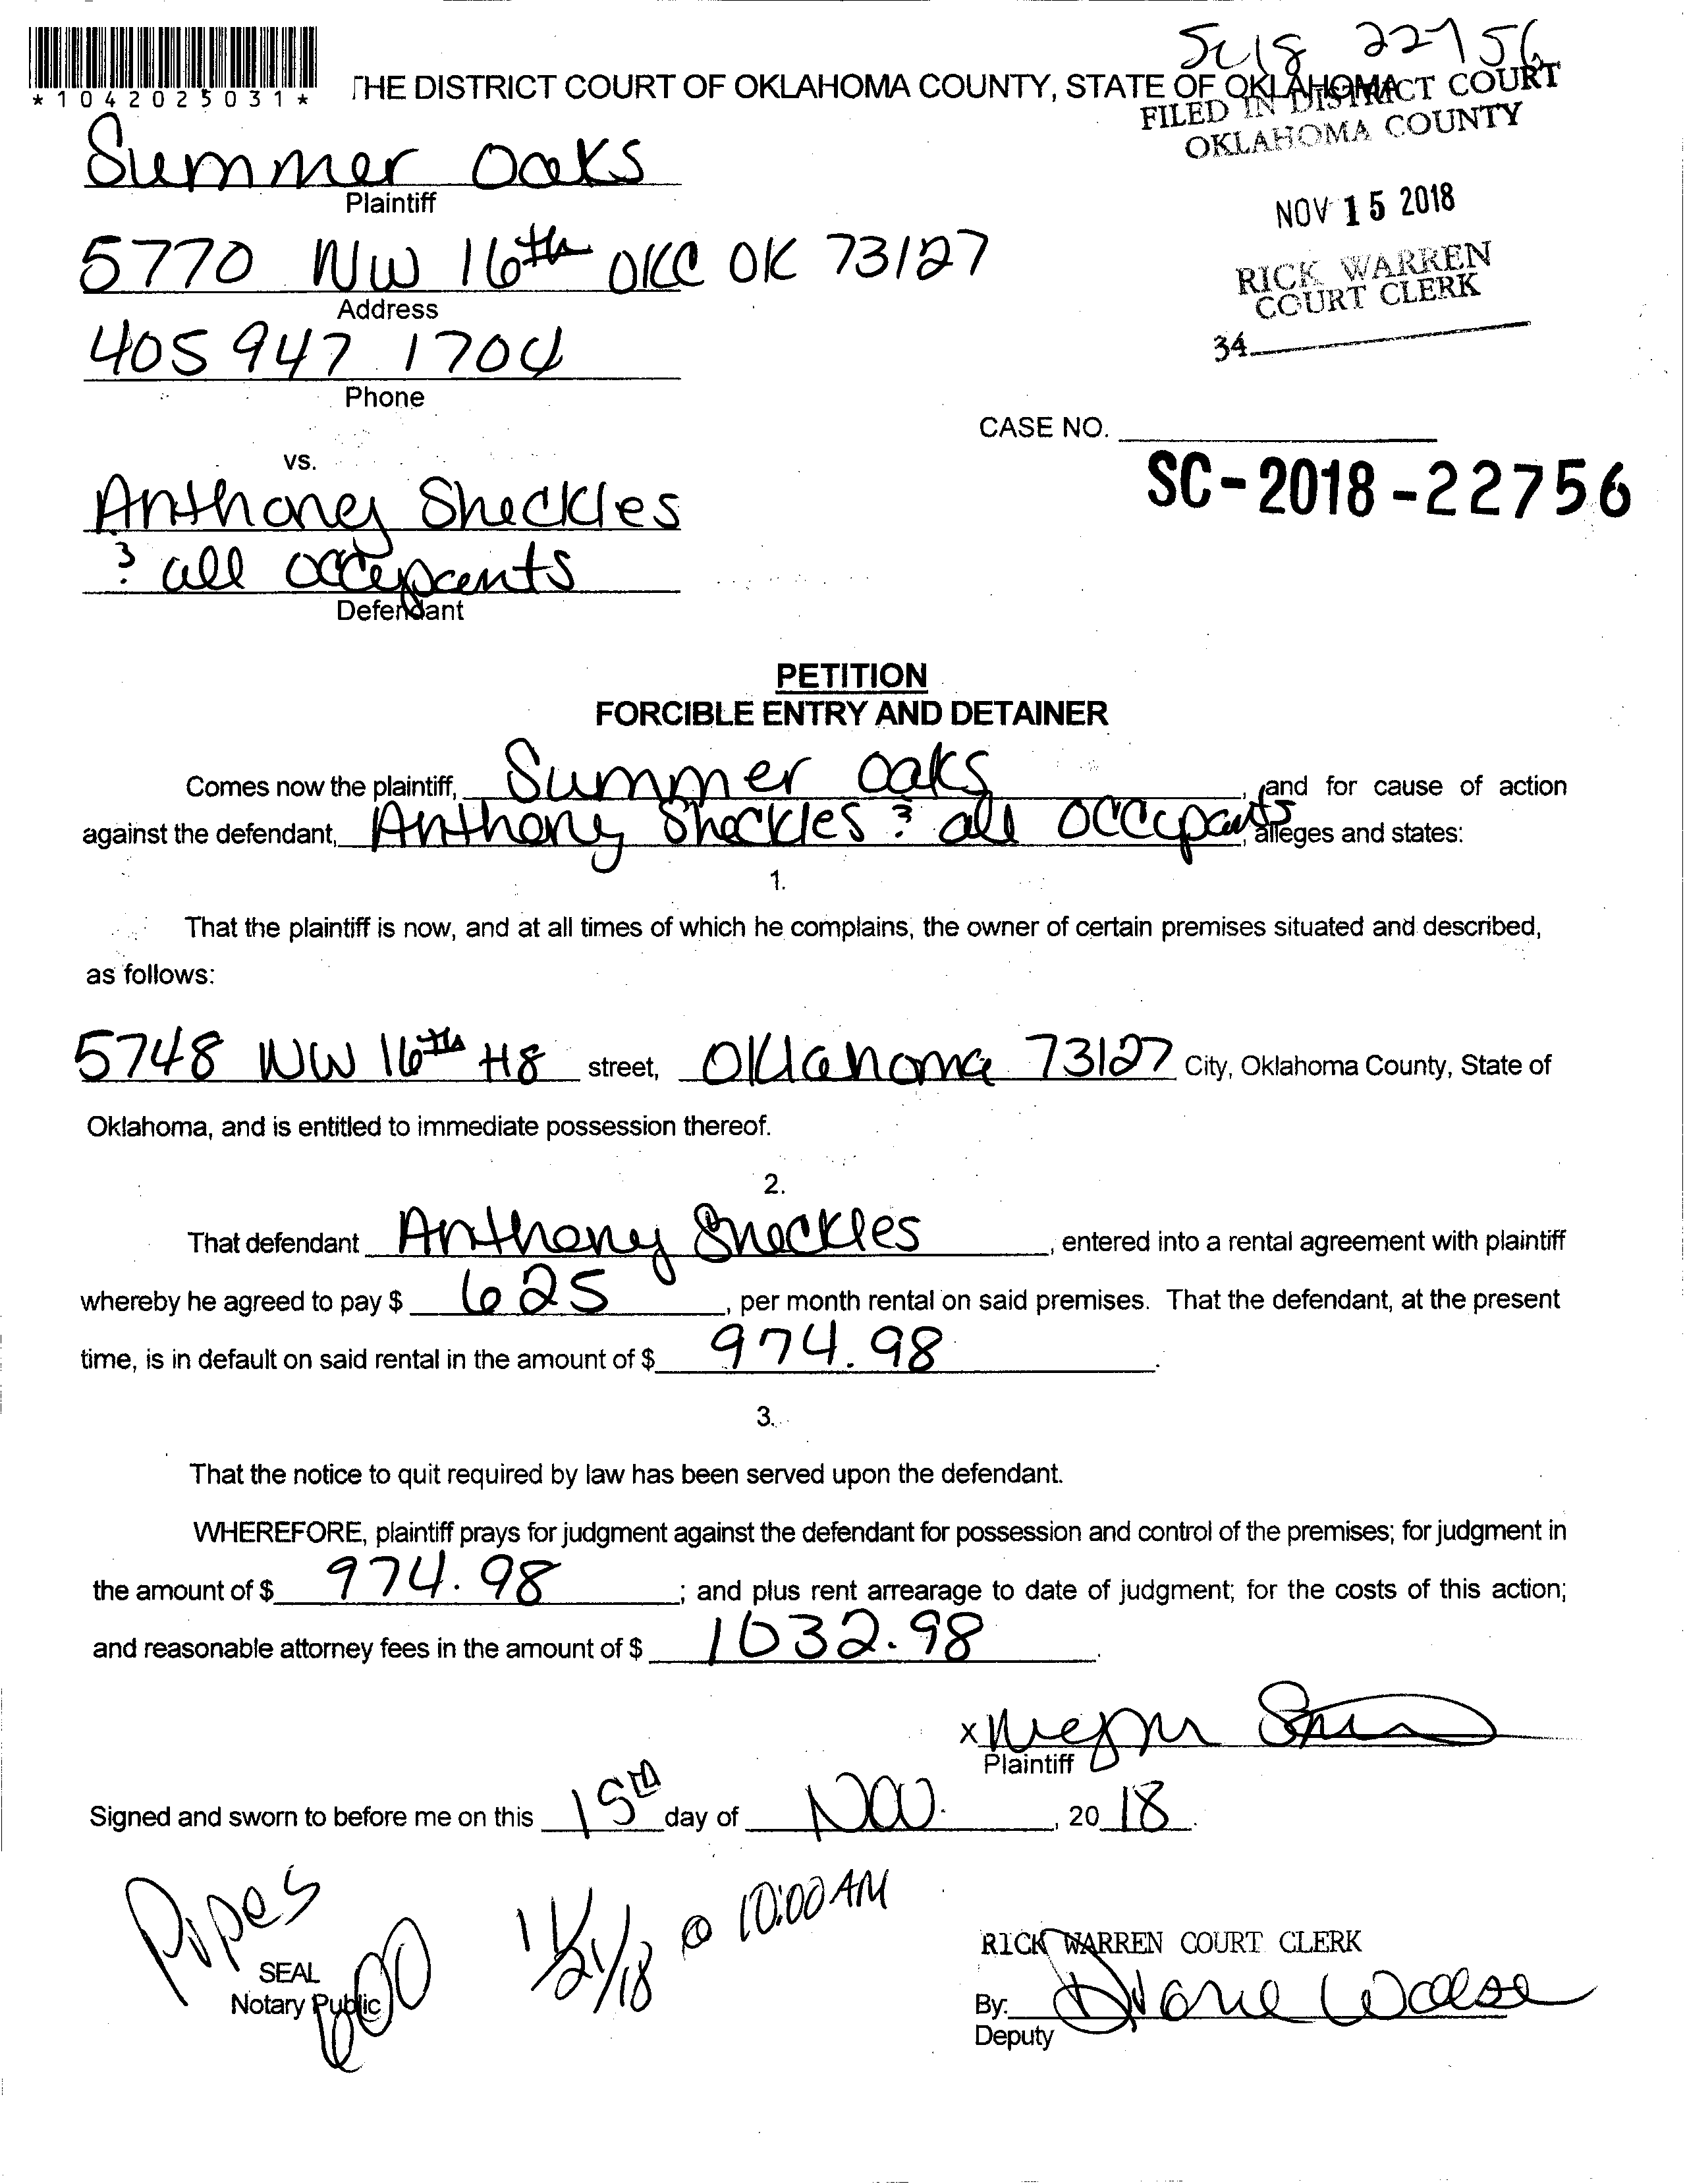 SC18 22756
*1042025031*
THE DISTRICT COURT OF OKLAHOMA COUNTY, STATE OF OKLAHOMA
FILED IN DISTRICT COURT
OKLAHOMA COUNTY
Summer Oaks
Plaintiff
NOV 15 2018
5770 NW 16th OKC OK 73127
Address
RICK WARREN
COURT CLERK
405 947 1704
Phone
34
CASE NO.
SC-2018-22756
vs.
Anthoney Sheckles
& all occupants
Defendant
PETITION
FORCIBLE ENTRY AND DETAINER
Comes now the plaintiff, Summer Oaks, and for cause of action
against the defendant, Anthony Sheckles & all occupants, alleges and states:
1.
That the plaintiff is now, and at all times of which he complains, the owner of certain premises situated and described,
as follows:
5748 NW 16th H8 street, Oklahoma 73127 City, Oklahoma County, State of
Oklahoma, and is entitled to immediate possession thereof.
2.
That defendant Anthony Sheckles, entered into a rental agreement with plaintiff
whereby he agreed to pay $ 625, per month rental on said premises. That the defendant, at the present
time, is in default on said rental in the amount of $ 974.98.
3.
That the notice to quit required by law has been served upon the defendant.
WHEREFORE, plaintiff prays for judgment against the defendant for possession and control of the premises; for judgment in
the amount of $ 974.98; and plus rent arrearage to date of judgment; for the costs of this action;
and reasonable attorney fees in the amount of $ 1032.98.
x
Plaintiff
Signed and sworn to before me on this 15th day of Nov., 2018.
Pipes
11/21/18 @ 10:00 AM
RICK WARREN COURT CLERK
SEAL
Notary Public
600
By:
Deputy